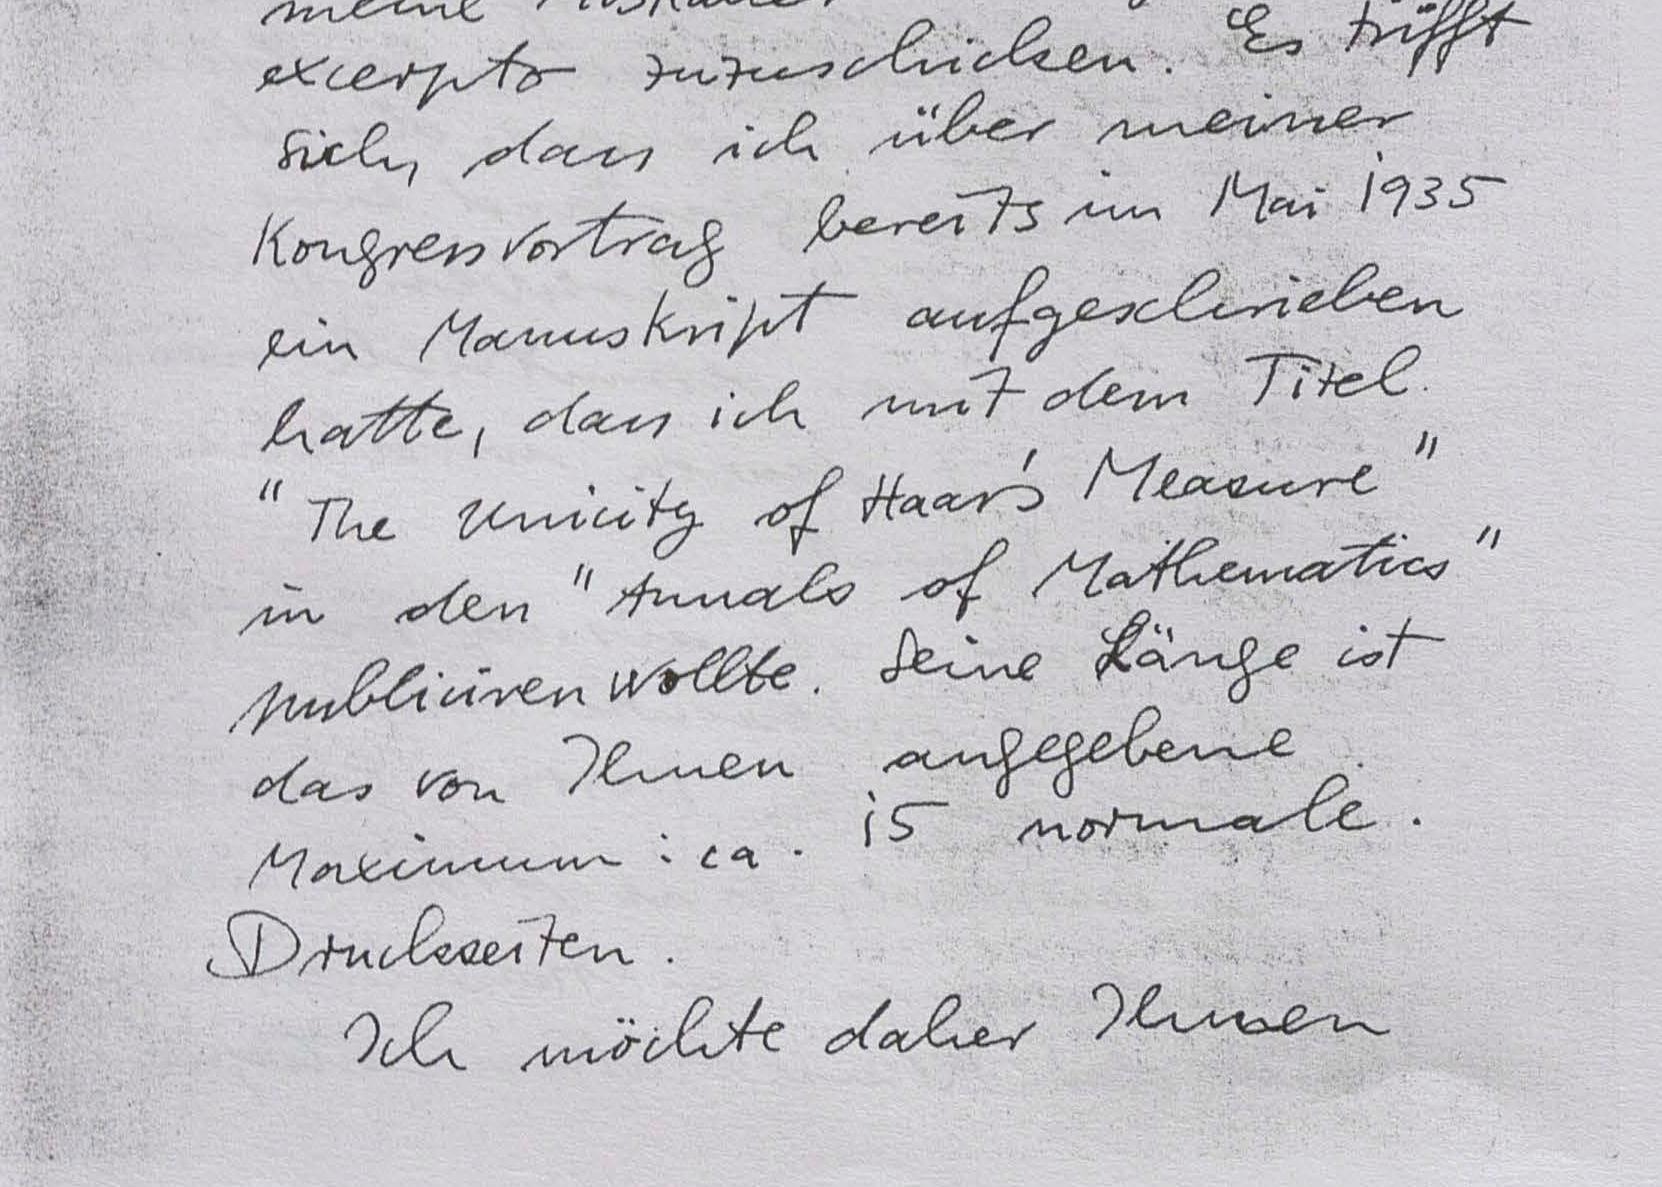 meine
excerpto zuzuschicken. Es trifft
sich, dass ich über meiner
Kongressvortrag bereits im Mai 1935
ein Manuskript aufgeschrieben
hatte, dass ich mit dem Titel
"The Unicity of Haar's Measure"
in den "Annals of Mathematics"
publiciren wollte. Seine Länge ist
das von Ihnen angegebene
Maximum: ca. 15 normale
Druckseiten.
Ich möchte daher Ihnen